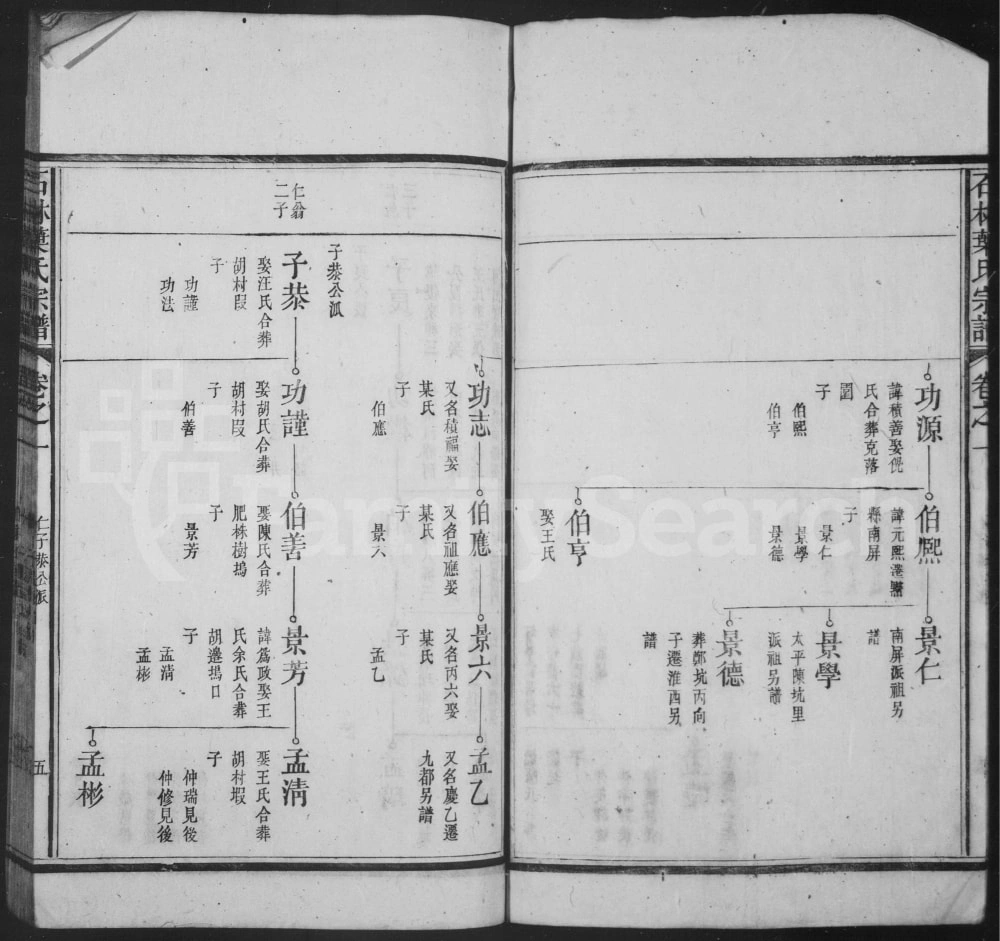 石林葉氏宗譜
卷之一
功源
諱積善娶倪
氏合葬克落
園
子
伯熙
伯亨
伯熈
諱元熈港
縣南屏
子
景仁
景學
景德
伯亨
娶王氏
景仁
南屏派祖另
譜
景學
太平陳坑里
派祖另譜
景德
葬鄭坑丙向
子遷淮西另
譜
功志
又名積福娶
某氏
子
伯應
伯應
又名祖應娶
某氏
子
景六
景六
又名丙六娶
某氏
子
孟乙
孟乙
又名慶乙遷
九都另譜
仁翁
二子
子恭公派
子恭
娶汪氏合葬
胡村叚
子
功謹
功法
功謹
娶胡氏合葬
胡村叚
子
伯善
伯善
娶陳氏合葬
肥株樹塢
子
景芳
景芳
諱為政娶王
氏余氏合葬
胡邊塢口
子
孟清
孟彬
孟清
娶王氏合葬
胡村塅
子
仲瑞見後
仲修見後
孟彬
石林葉氏宗譜
卷之一
仁子恭公派
五
FamilySearch